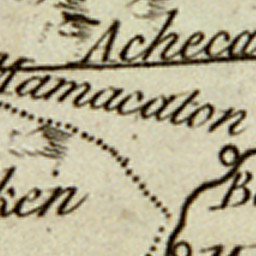 Acheca
Hamacaton
ken
B